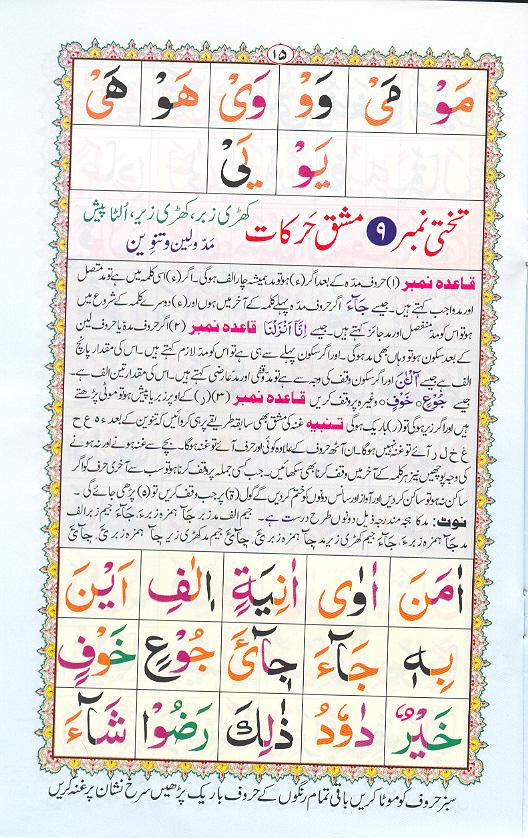 ۱۵
مَوْ مَیْ وَوْ وَیْ هَوْ هَیْ
یَوْ یَیْ
تختی نمبر ۹ مشق حرکات کھڑی زبر، کھڑی زیر، اُلٹا پیش
مدّ ولین وتنوین
قاعدہ نمبر (۱) حروف مدہ کے بعد اگر (ء) ہو تو مد ہمیشہ چار الف ہوگی۔ اگر (ء) اسی کلمہ میں ہے تو مد متصل
اور مد واجب کہتے ہیں۔ جیسے جَآءَ اگر حروف مدہ پہلے کلمے کے آخر میں ہوں اور (ء) دوسرے کلمہ کے شروع میں
ہو تو اس کو مد منفصل اور مد جائز کہتے ہیں۔ جیسے اِنَّآ اَنْزَلْنَا قاعدہ نمبر (۲) اگر حروف مدہ یا حروف لین
کے بعد سکون ہو تو وہاں بھی مد ہوگی۔ اور اگر سکون پہلے سے ہی ہے تو اس کو مد لازم کہتے ہیں۔ اس کی مقدار پانچ
الف ہے جیسے آلْـٰٔنَ اور اگر سکون وقف کی وجہ سے ہے تو مد وقفی اور مد عارضی کہتے ہیں۔ اس کی مقدار تین الف ہے۔
جیسے جُوْعٍ ○ خَوْفٍ ○ وغیرہ پر وقف کریں قاعدہ نمبر (۳) (ر) کے اوپر زبر یا پیش ہو تو موٹی پڑھتے
ہیں اور اگر زیر ہوگی تو (ر) باریک ہوگی تنبیہ غنہ کی مشق بھی سابقہ طریقے پر ہی کروائیں کہ تنوین کے بعد ء ہ ع ح
غ خ ل ر آئے تو غنہ نہیں ہوگا۔ ان آٹھ حروف کے علاوہ کوئی اور حرف آئے تو غنہ ہوگا۔ بچے سے غنہ ہونے اور نہ ہونے
کی وجہ پوچھیں نیز ہر کلمہ کے آخر میں وقف کرنا بھی سکھائیں۔ جب کسی جملہ پر وقف کرنا ہو تو سب سے آخری حرف کو اگر
ساکن نہ ہو تو ساکن کر دیں اور آواز اور سانس دونوں کو ختم کر دیں گے گول (ة) پر جب وقف کریں تو (ہ) پڑھی جائے گی۔
نوٹ: مد کا ہجہ مندرجہ ذیل دونوں طرح درست ہے۔ جیم الف مد زبر جَآ ہمزہ زبر ءَ، جَآءَ جیم زبر الف
مد جَآ ہمزہ زبر ءَ، جَآءَ جیم کھڑی زیر مد
اٰمَنَ اٰوٰی اٰنِیَةٍ اِلٰفِ اَیْنَ
بِهٖ جَآءَ جُوْعٍ خَوْفٍ
خَیْرٌ دَاوٗدُ ذٰلِكَ رَضُوْا شَآءَ
سبز حروف کو موٹا کریں باقی تمام رنگوں کے حروف باریک پڑھیں سرخ نشان پر غنہ کریں